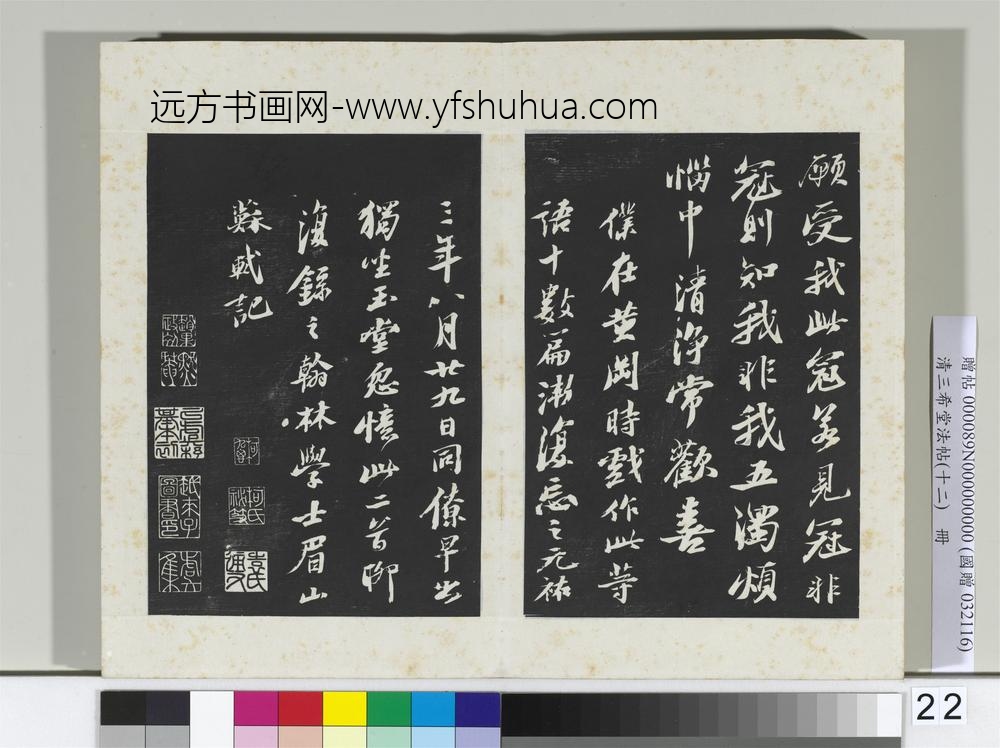 远方书画网-www.yfshuhua.com
願受我此冠若見冠非
冠則知我非我五濁煩
惱中清淨常歡喜
僕在黄岡時戲作此等
語十數篇漸復忘之元祐
三年八月廿九日同僚早出
獨坐玉堂忽憶此二首聊
復錄之翰林學士眉山
蘇軾記
贈帖 000089N000000000 (國贈 032116)
清三希堂法帖(十二) 冊
22